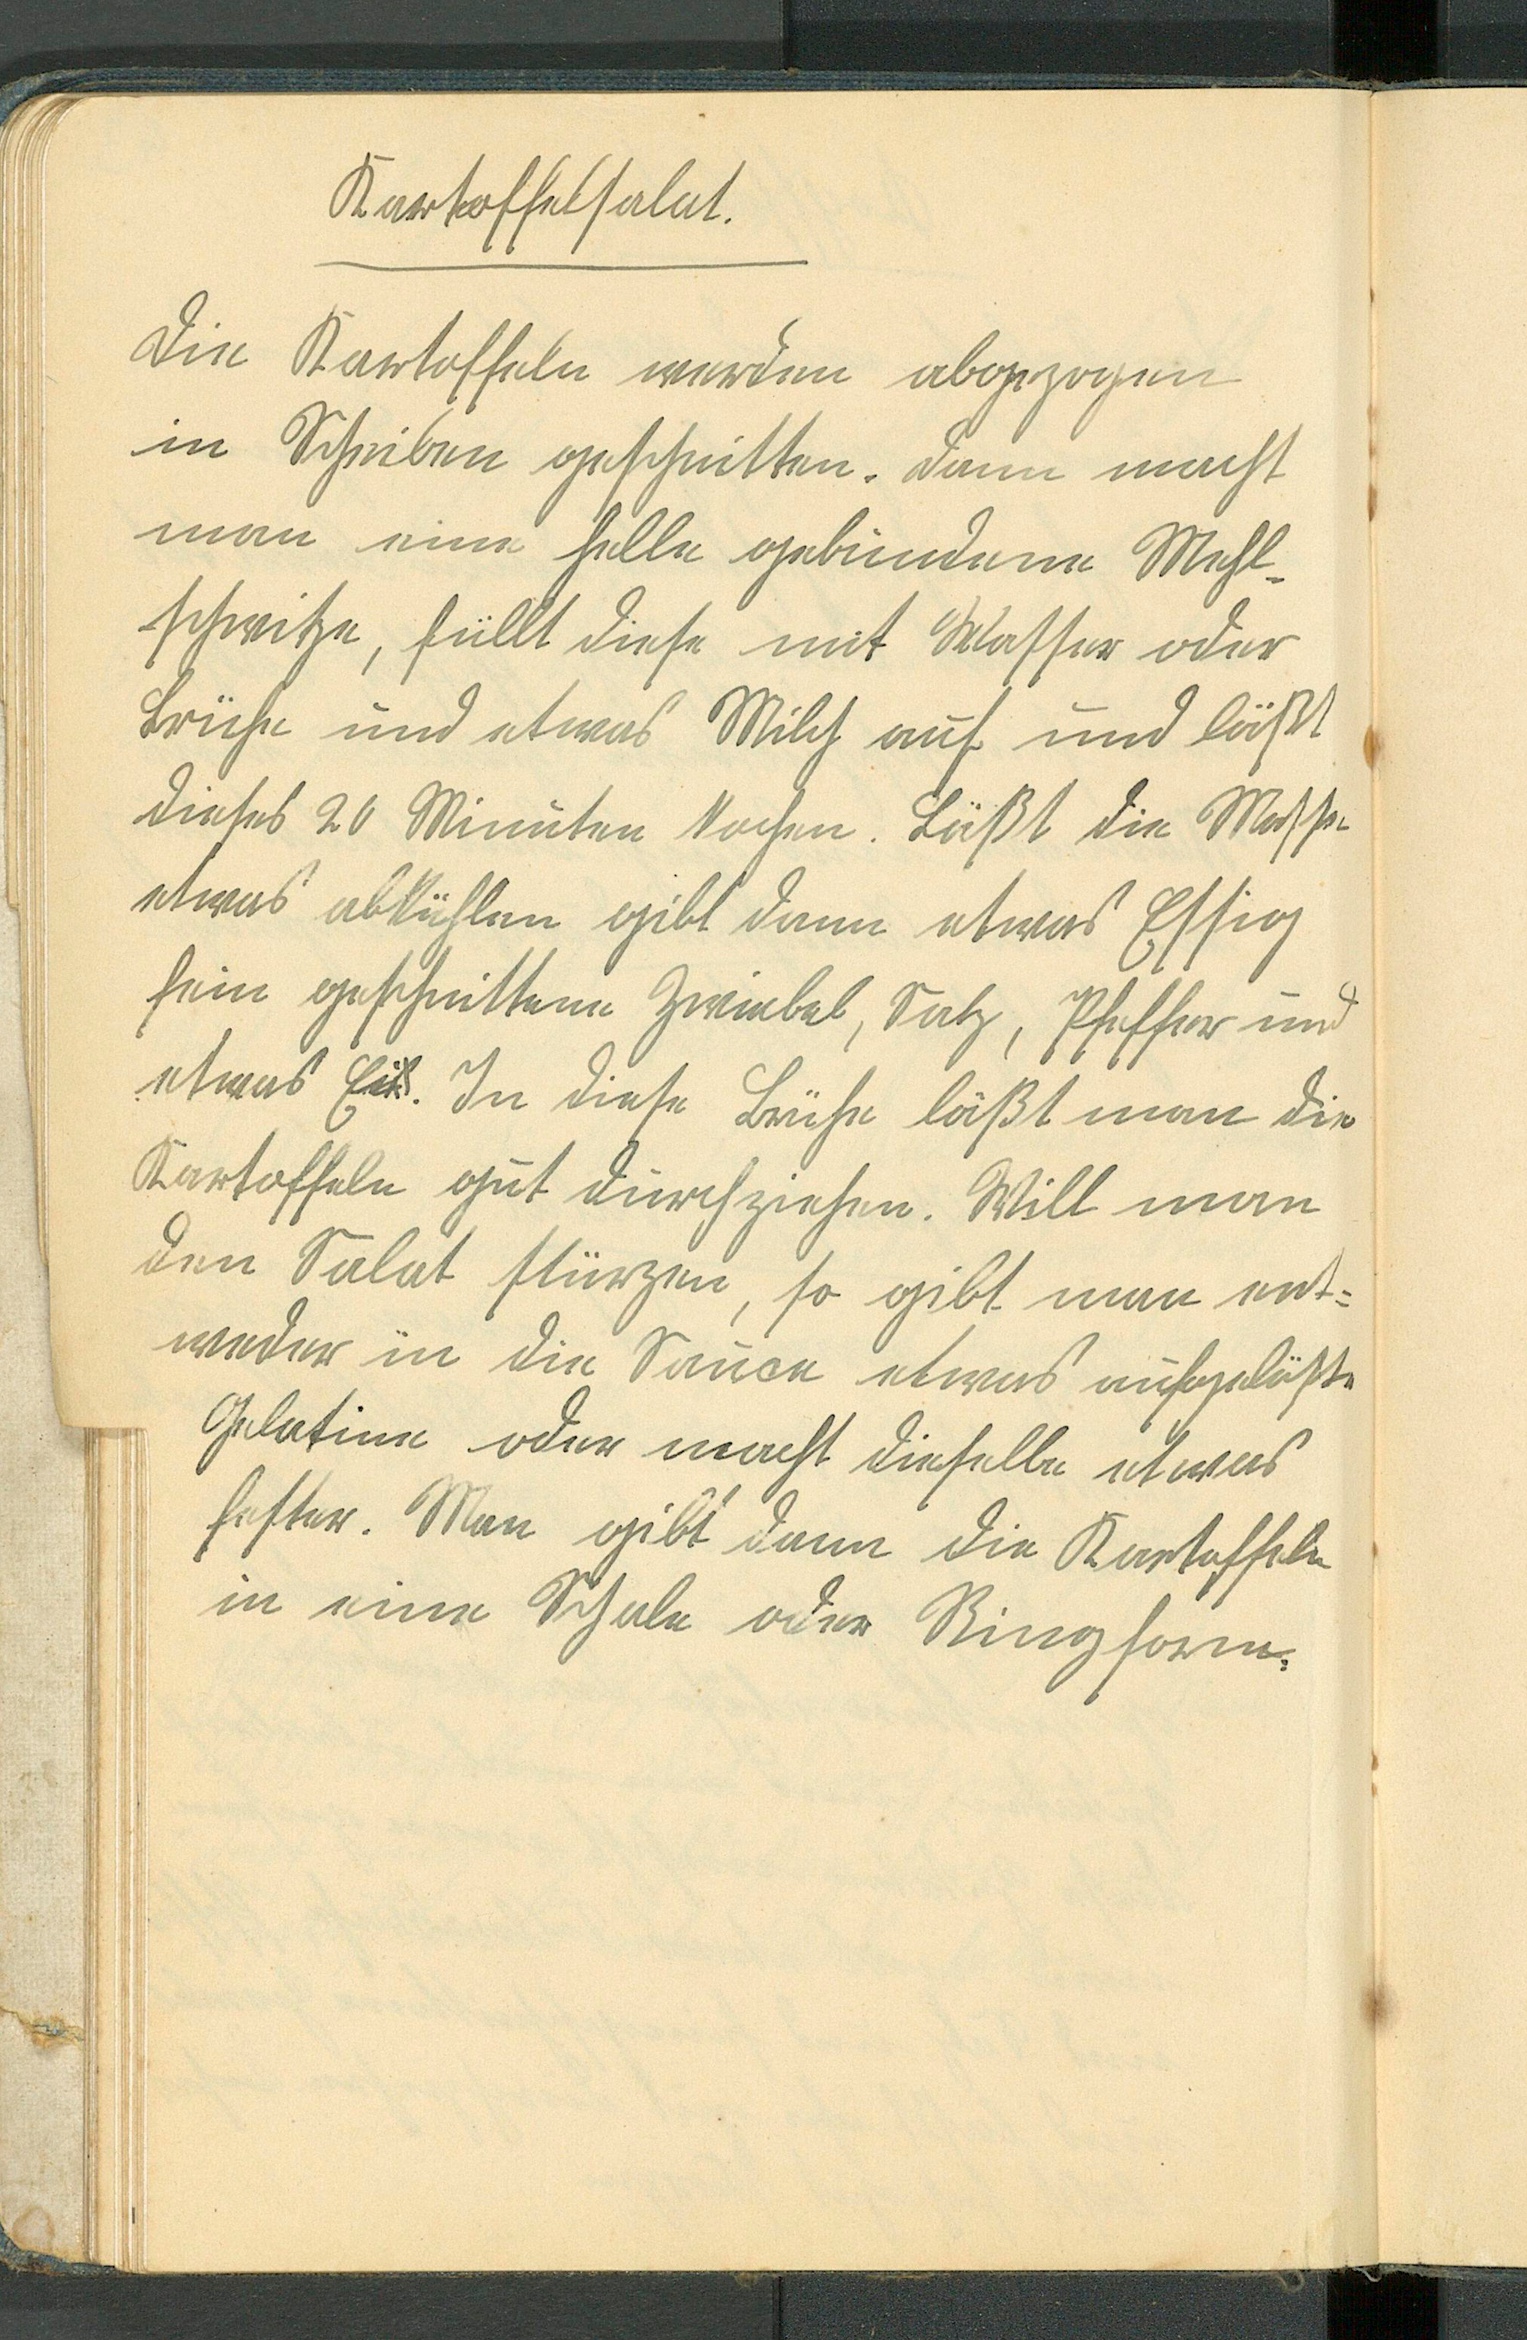 Kartoffelsalat.
Die Kartoffeln werden abgezogen
in Scheiben geschnitten. Dann macht
man eine helle gebundene Mehl-
schwitze, füllt diese mit Wasser oder
Brühe und etwas Milch auf und läßt
dieses 20 Minuten kochen. Läßt die Masse
etwas abkühlen gibt dann etwas Essig
fein geschnittene Zwiebel, Salz, Pfeffer und
etwas. In diese Brühe läßt man die
Kartoffeln gut durchziehen. Will man
den Salat stürzen, so gibt man ent=
weder in die Sauce etwas aufgelößte
Gelatine oder macht dieselbe etwas
fester. Man gibt dann die Kartoffeln
in eine Schale oder Ringform.